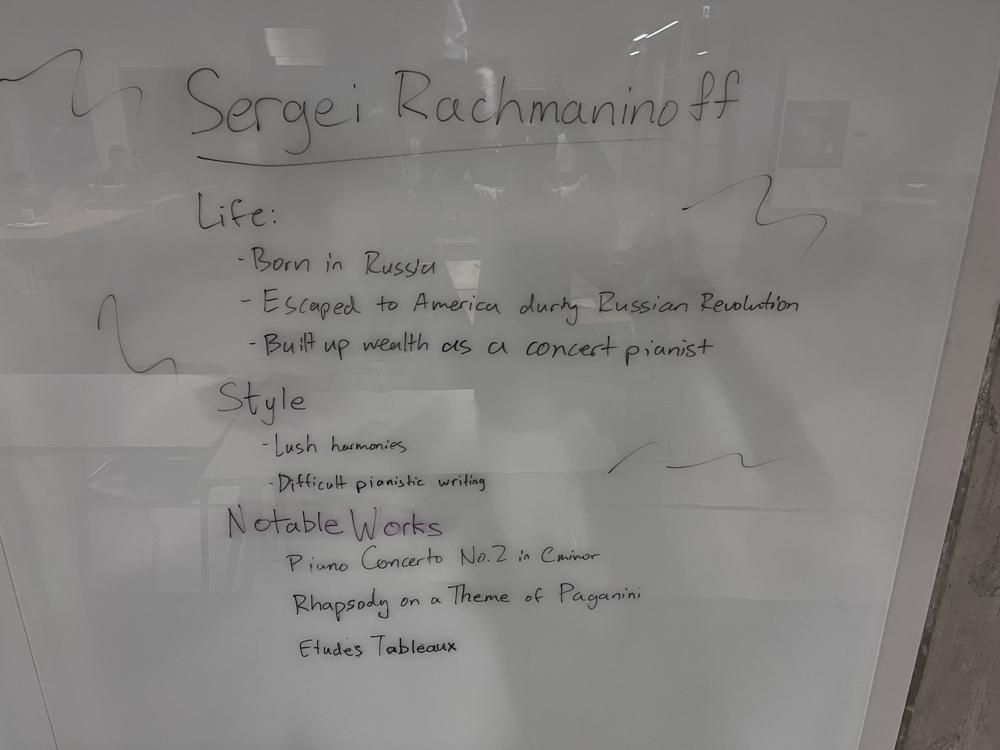 Sergei Rachmaninoff
Life:
- Born in Russia
- Escaped to America during Russian Revolution
- Built up wealth as a concert pianist
Style
- Lush harmonies
- Difficult pianistic writing
Notable Works
Piano Concerto No.2 in C minor
Rhapsody on a Theme of Paganini
Etudes Tableaux